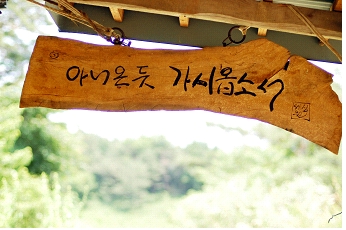 아니온듯 가시옵소서